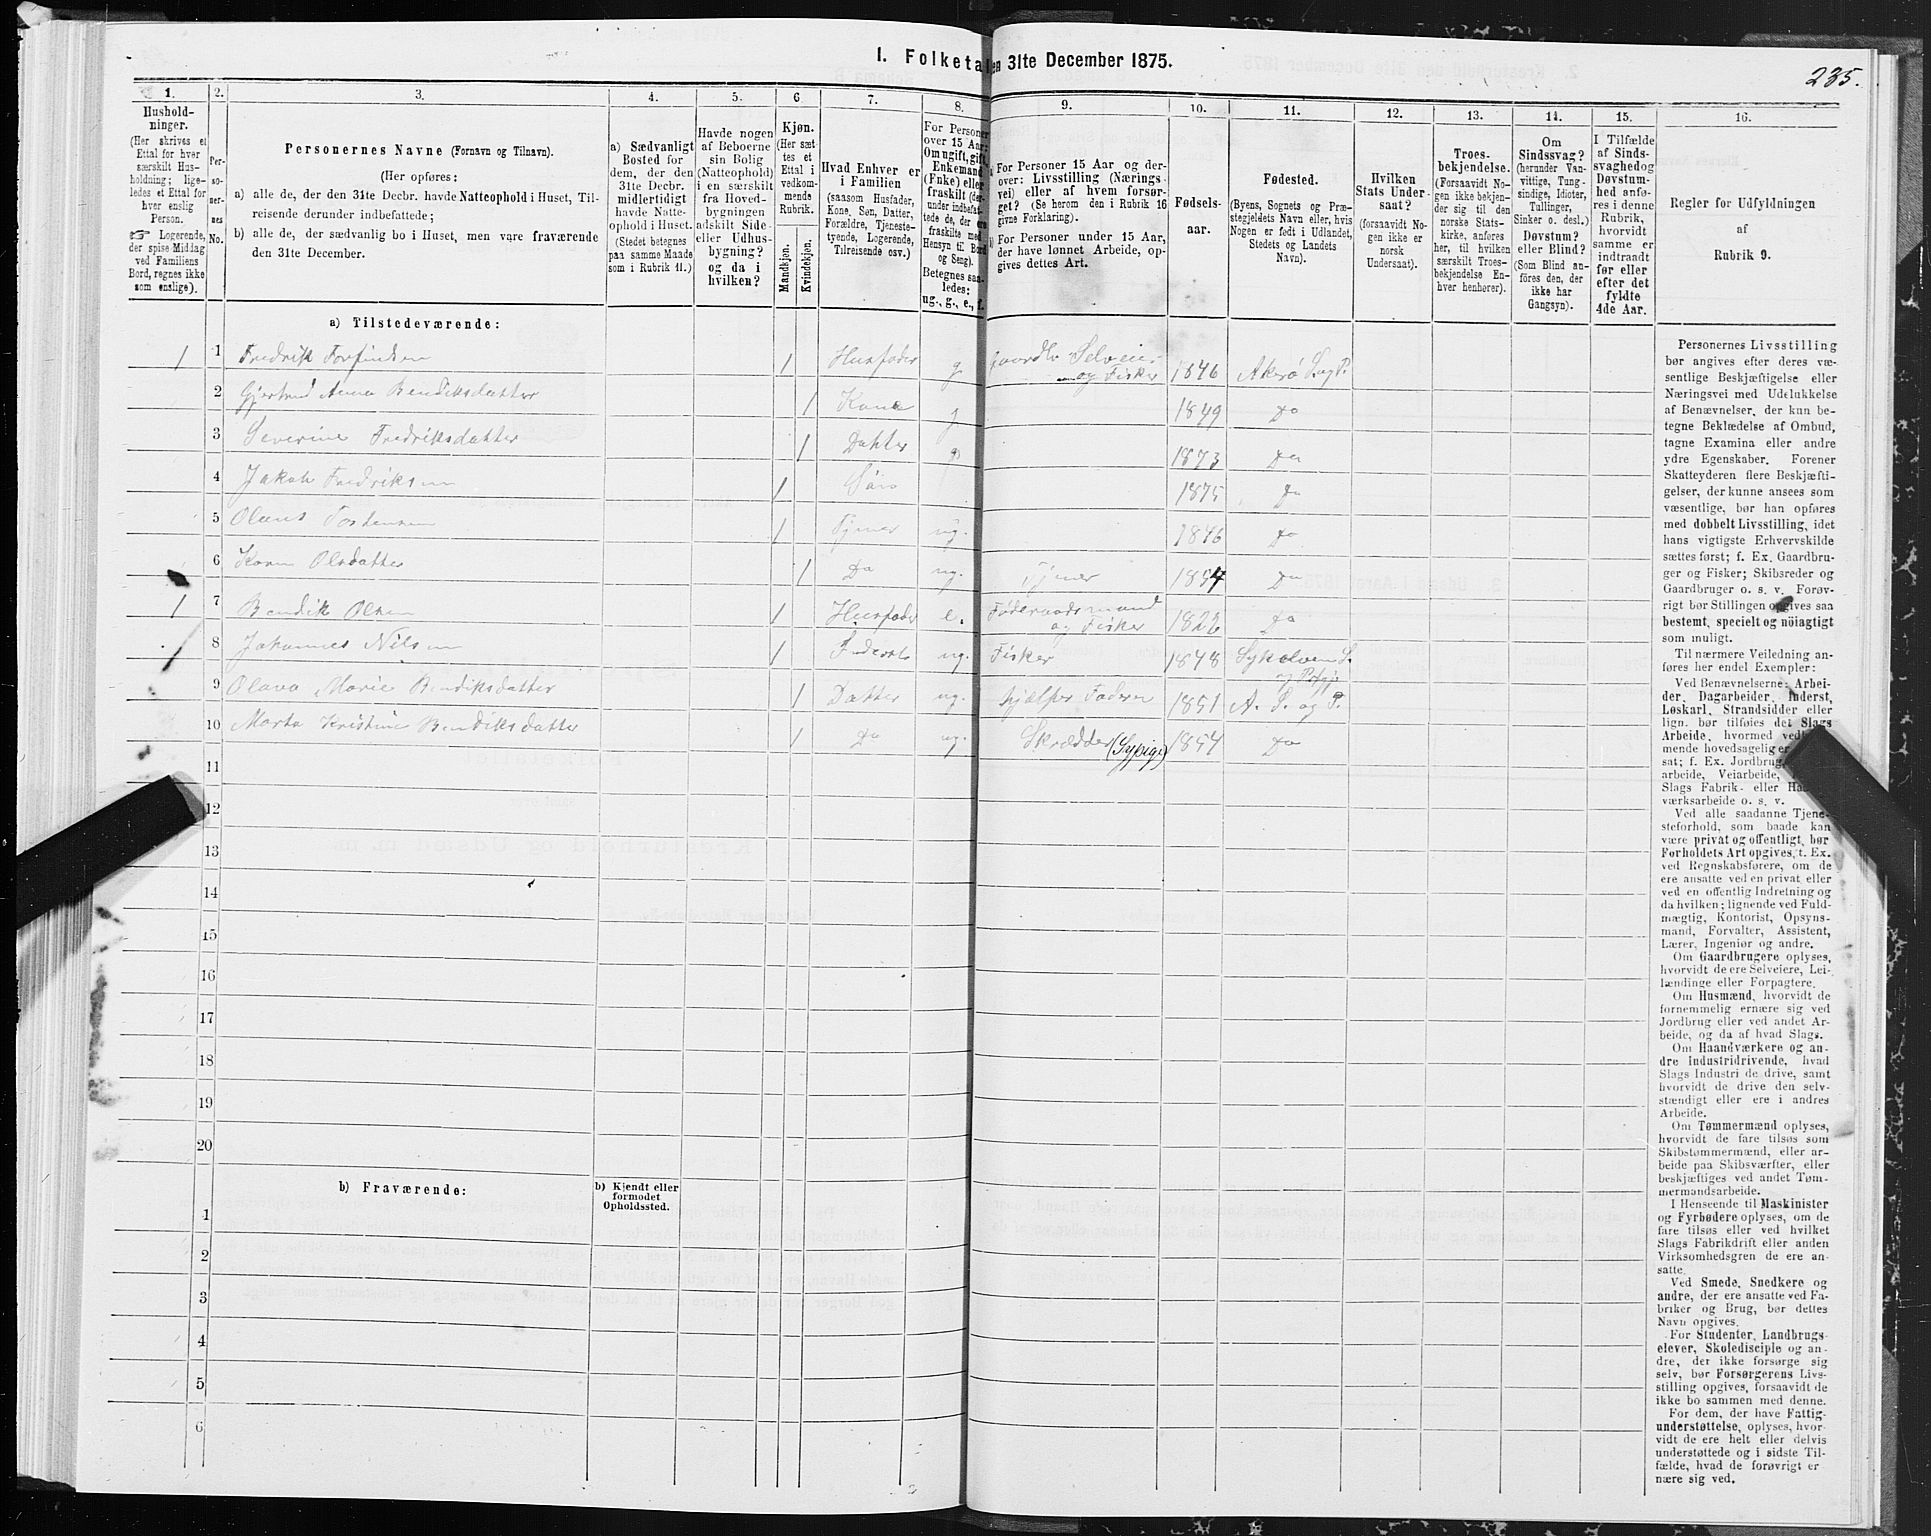 I. Folketal den 31te December 1875.
235.
1.
Hushold-
ninger.
(Her skrives et
Ettal for hver
særskilt Hus-
holdning; lige-
ledes et Ettal for
hver enslig
Person.
☞ Logerende,
der spise Middag
ved Familiens
Bord, regnes ikke
som enslige).
2.
Per-
so-
ner-
nes
No.
3.
Personernes Navne (Fornavn og Tilnavn).
(Her opføres:
a) alle de, der den 31te Decbr. havde Natteophold i Huset, Til-
reisende derunder indbefattede;
b) alle de, der sædvanlig bo i Huset, men vare fraværende
den 31te December.
4.
a) Sædvanligt
Bosted for
dem, der den
31te Decbr.
midlertidigt
havde Natte-
ophold i Huset.
(Stedet betegnes
paa samme Maade
som i Rubrik 11.)
5.
Havde nogen
af Beboerne
sin Bolig
(Natteophold)
i en særskilt
fra Hoved-
bygningen
adskilt Side-
eller Udhus-
bygning?
og da i
hvilken?
6.
Kjøn.
(Her sæt-
tes et
Ettal i
vedkom-
mende
Rubrik.
Mandkjøn.
Kvindekjøn.
7.
Hvad Enhver er
i Familien
(saasom Husfader,
Kone, Søn, Datter,
Forældre, Tjeneste-
tyende, Logerende,
Tilreisende osv.)
8.
For Personer
over 15 Aar:
Om ugift, gift,
Enkemand
(Enke) eller
fraskilt (der-
under indbefat-
tede de, der ere
fraskilte med
Hensyn til Bord
og Seng).
Betegnes saa-
ledes:
ug., g., e., f.
9.
a) For Personer 15 Aar og der-
over: Livsstilling (Nærings-
vei) eller af hvem forsør-
get? (Se herom den i Rubrik 16
givne Forklaring).
b) For Personer under 15 Aar,
der have lønnet Arbeide, op-
gives dettes Art.
10.
Fødsels-
aar.
11.
Fødested.
(Byens, Sognets og Præ-
stegjeldets Navn eller, hvis
Nogen er født i Udlandet,
Stedets og Landets
Navn).
12.
Hvilken
Stats Under-
saat?
(forsaavidt No-
gen ikke er
norsk
Undersaat).
13.
Troes-
bekjendelse.
(Forsaavidt No-
gen ikke bekjen-
der sig til den
norske Stats-
kirke, anføres
her, til hvilken
særskilt Troes-
bekjendelse En-
hver henhører).
14.
Om
Sindssvag?
(herunder Van-
vittige, Tung-
sindige, Idioter,
Tullinger,
Sinker o. desl.)
Døvstum?
eller Blind?
(Som Blind an-
føres den, der
ikke har
Gangsyn).
15.
I Tilfælde
af Sinds-
svaghed og
Døvstum-
hed anfø-
res i denne
Rubrik,
hvorvidt
samme er
indtraadt
før eller
efter det
fyldte
4de Aar.
16.
Regler for Udfyldningen
af
Rubrik 9.
a) Tilstedeværende:
1 1 Fredrik Torfindsen 1 Husfader g Gaardbr Selveier og Fisker 1846 Akerø S. og P.
2 Gjertrud Anna Bendiksdatter 1 Kone g 1849 Do
3 Severine Fredriksdatter 1 Datter 1873 Do
4 Jakob Fredriksen 1 Søn 1875 Do
5 Olaus Tostensen 1 Tjener ug. 1846 Do
6 Karen Olsdatter 1 Do ug. Tjener 1854 Do
1 7 Bendik Olsen 1 Husfader e. Føderaadsmand og Fisker 1822 Do
8 Johannes Nilsen 1 Inderst ug. Fisker 1848 Sykelven S. og Prgj.
9 Olava Marie Bendiksdatter 1 Datter ug. hjælper Faderen 1851 A. S. og P.
10 Marta Kristine Bendiksdatter 1 Do ug. Skrædder (Sypige) 1854 Do
11
12
13
14
15
16
17
18
19
20
b) Fraværende:
b) Kjendt eller
formodet
Opholdssted.
1
2
3
4
5
6
Personernes Livsstilling
bør angives efter deres væ-
sentlige Beskjæftigelse eller
Næringsvei med Udelukkelse
af Benævnelser, der kun be-
tegne Beklædelse af Ombud,
tagne Examina eller andre
ydre Egenskaber. Forener
Skatteyderen flere Beskjæfti-
gelser, der kunne ansees som
væsentlige, bør han opføres
med dobbelt Livsstilling, idet
hans vigtigste Erhvervskilde
sættes først; f. Ex. Gaardbru-
ger og Fisker; Skibsreder og
Gaardbruger o. s. v. Forøv-
rigt bør Stillingen opgives saa
bestemt, specielt og nöiagtigt
som muligt.
Til nærmere Veiledning an-
føres her endel Exempler:
Ved Benævnelserne: Arbei-
der, Dagarbeider, Inderst,
Løskarl, Strandsidder eller
lign. bør tilføies det Slags
Arbeide, hvormed ved
mende hovedsagelig er
sat; f. Ex. Jordbrug,
arbeide, Veiarbeide,
Slags Fabrik- eller Haa
værksarbeide o. s. v.
Ved alle saadanne Tjene-
steforhold, som baade kan
være privat og offentligt, bør
Forholdets Art opgives, t. Ex.
ved Regnskabsførere, om de
ere ansatte ved en privat eller
ved en offentlig Indretning og
da hvilken; lignende ved Fuld-
mægtig, Kontorist, Opsyns-
mand, Forvalter, Assistent,
Lærer, Ingeniør og andre.
Om Gaardbrugere oplyses,
hvorvidt de ere Selveiere, Lei-
lændinge eller Forpagtere.
Om Husmænd, hvorvidt de
fornemmelig ernære sig ved
Jordbrug eller ved andet Ar-
beide, og da af hvad Slags.
Om Haandværkere og an-
dre Industridrivende, hvad
Slags Industri de drive, samt
hvorvidt de drive den selv-
stændigt eller ere i andres
Arbeide.
Om Tømmermænd oplyses,
hvorvidt de fare tilsøs som
Skibstømmermænd, eller ar-
beide paa Skibsværfter, eller
beskjæftiges ved andet Tøm-
mermandsarbeide.
I Henseende til Maskinister
og Fyrbødere oplyses, om de
fare tilsøs eller ved hvilket
Slags Fabrikdrift eller anden
Virksomhedsgren de ere an-
satte.
Ved Smede, Snedkere og
andre, der ere ansatte ved Fa-
briker og Brug, bør dettes
Navn opgives.
For Studenter, Landbrugs-
elever, Skoledisciple og an-
dre, der ikke forsørge sig
selv, bør Forsørgerens Livs-
stilling opgives, forsaavidt de
ikke bo sammen med denne.
For dem, der have Fattig-
understøttelse, oplyses, hvor-
vidt de ere helt eller delvis
understøttede og i sidste Til-
fælde, hvad de forøvrigt er-
nære sig ved.